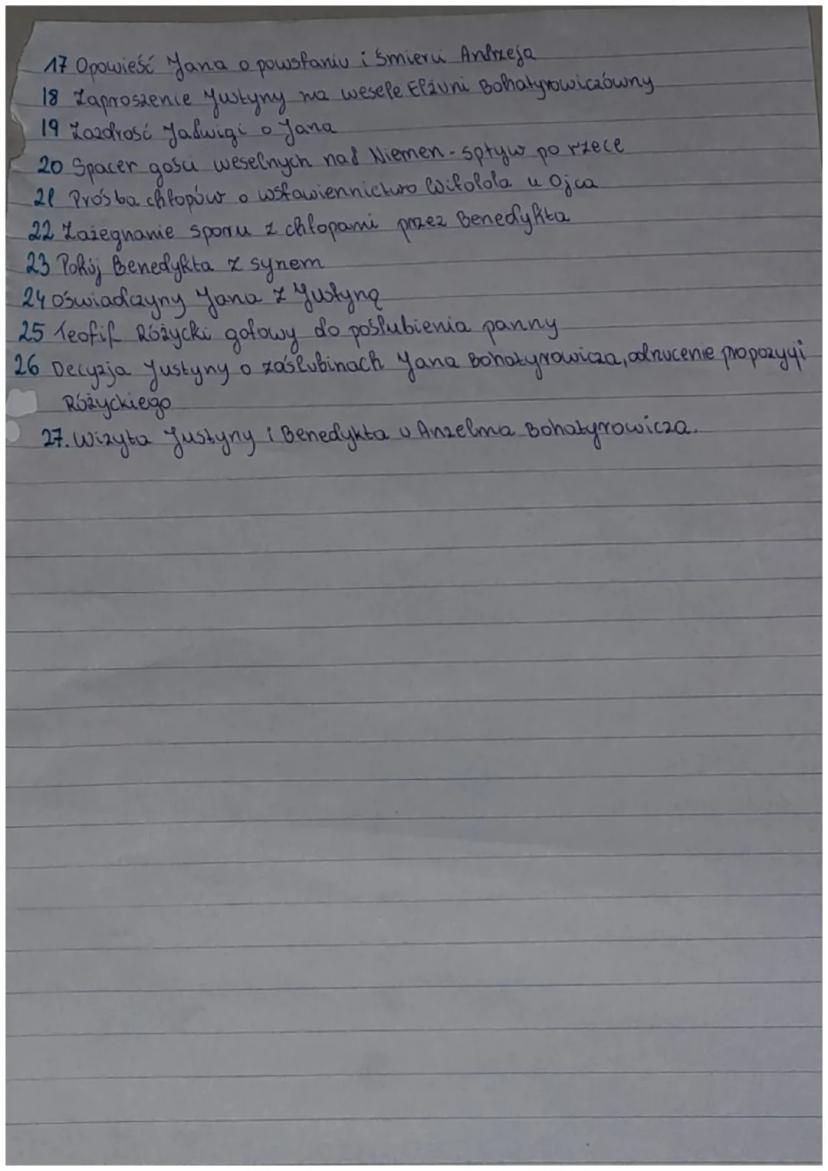 17 Opowieść Jana o powstaniu i śmierci Andrzeja
18 Zaproszenie Justyny na wesele Elżuni Bohatyrowiczówny
19 Zazdrość Jadwigi o Jana
20 Spacer gości weselnych nad Niemen - spływ po rzece
21 Prośba chłopów o wstawiennictwo Witolda u Ojca
22 Zażegnanie sporu z chłopami przez Benedykta
23 Pokój Benedykta z synem
24 Oświadczyny Jana z Justyną
25 Teofil Różycki gotowy do poślubienia panny
26 Decyzja Justyny o zaślubinach Jana Bohatyrowicza, odrzucenie propozycji
Różyckiego
27. Wizyta Justyny i Benedykta u Anzelma Bohatyrowicza.